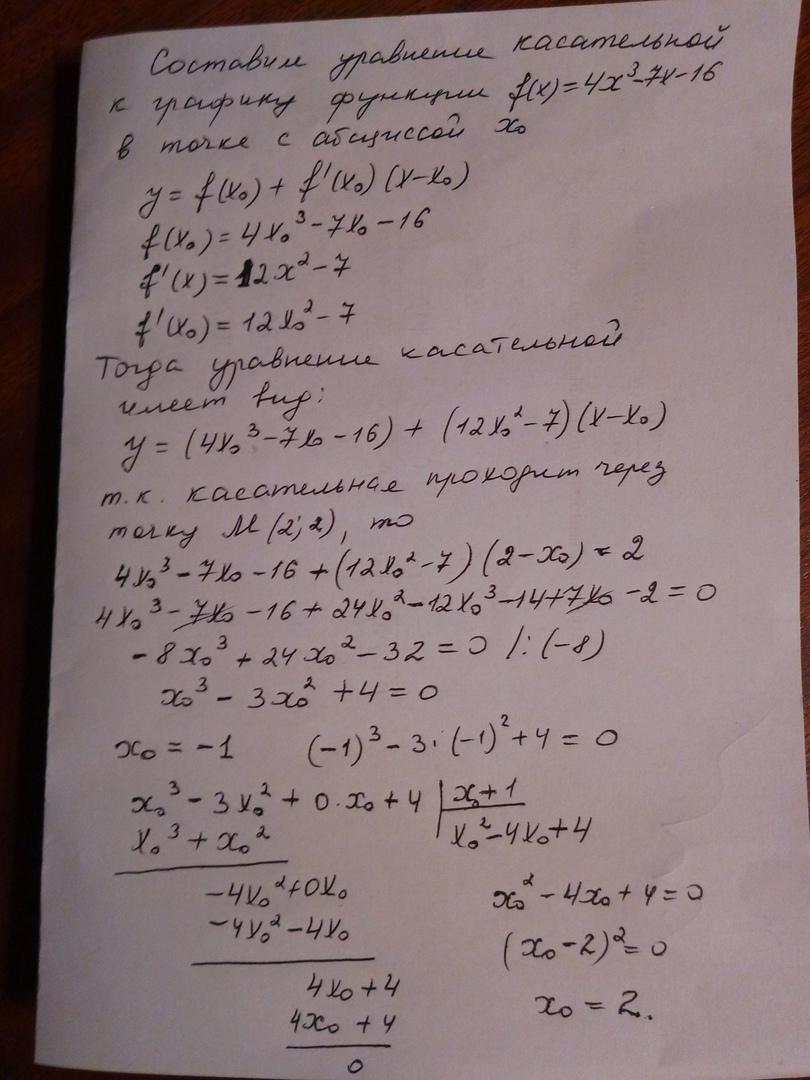 Составим уравнение касательной
к графику функции f(x)=4x³-7x-16
в точке с абсциссой x₀
y = f(x₀) + f'(x₀)(x-x₀)
f(x₀) = 4x₀³-7x₀-16
f'(x) = 12x²-7
f'(x₀) = 12x₀²-7
Тогда уравнение касательной
имеет вид:
y = (4x₀³-7x₀-16) + (12x₀²-7)(x-x₀)
т.к. касательная проходит через
точку M(2;2), то
4x₀³-7x₀-16+(12x₀²-7)(2-x₀) = 2
4x₀³-7x₀-16+24x₀²-12x₀³-14+7x₀-2=0
-8x₀³+24x₀²-32=0 /:(-8)
x₀³-3x₀²+4=0
x₀=-1 (-1)³-3·(-1)²+4=0
x₀³-3x₀²+0·x₀+4 | x₀+1
x₀³+x₀² x₀²-4x₀+4
-4x₀²+0x₀ x₀²-4x₀+4=0
-4x₀²-4x₀ (x₀-2)²=0
4x₀+4 x₀=2.
4x₀+4
0